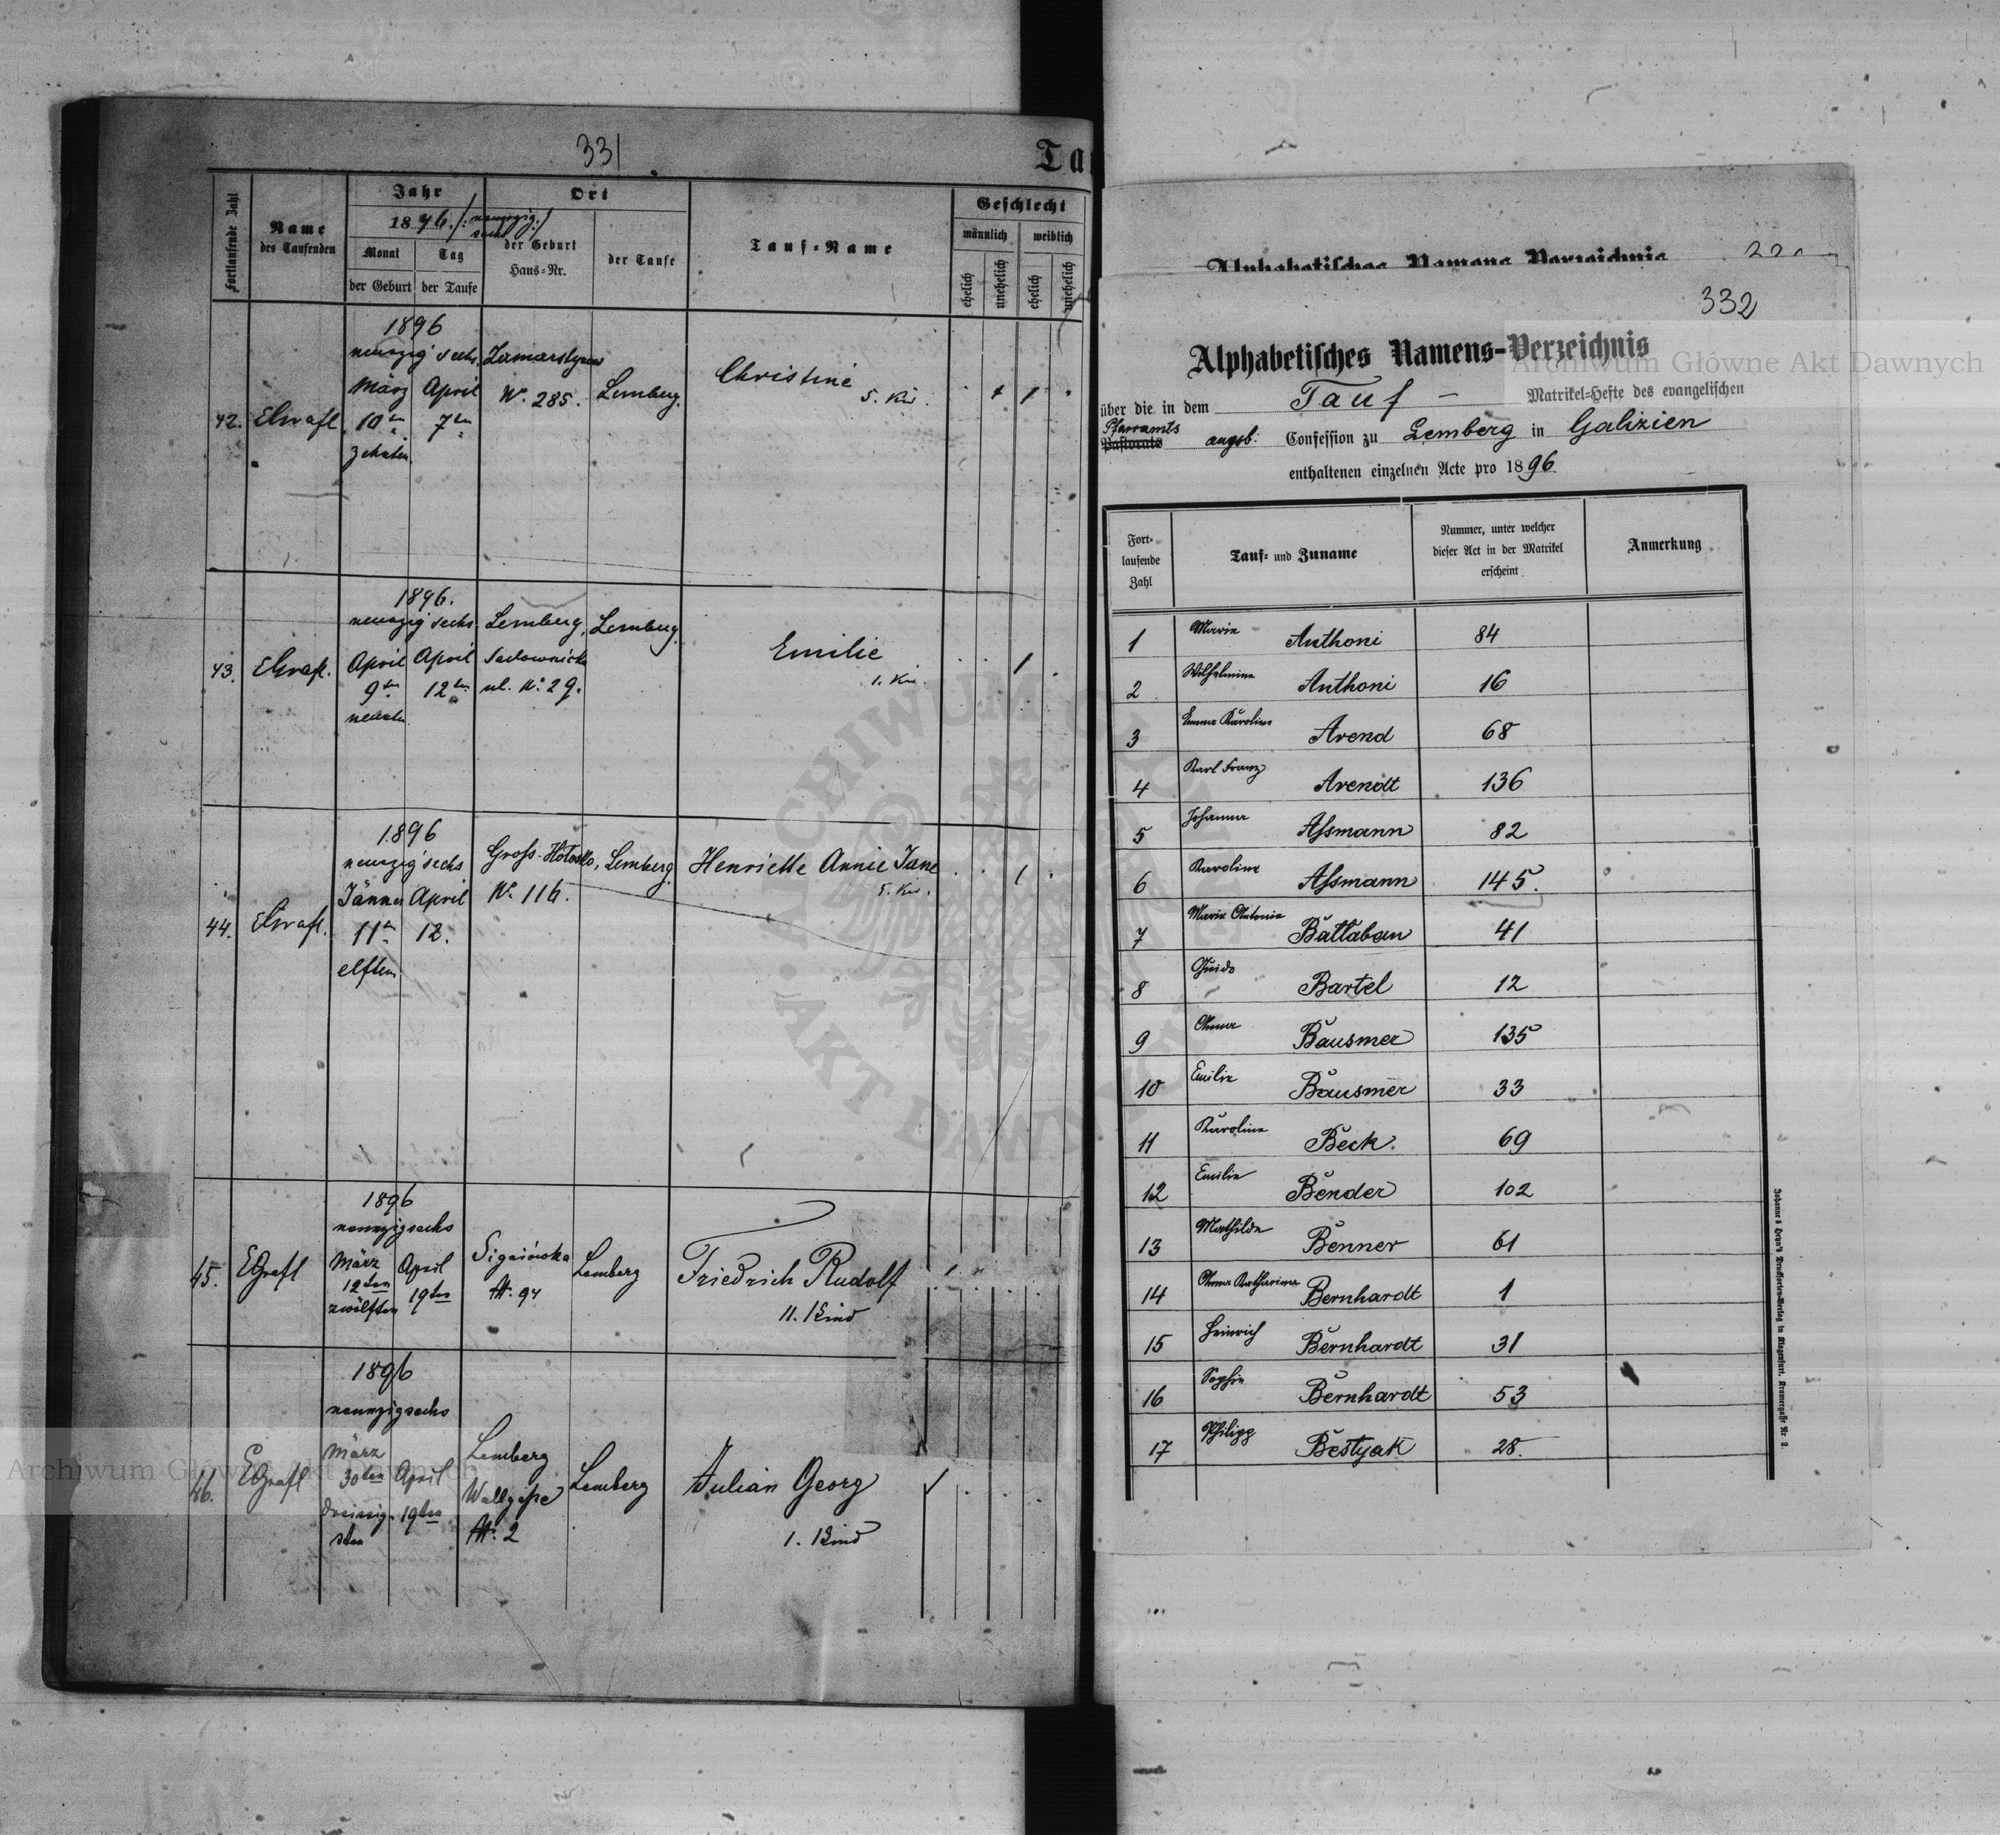 331
Ta
Fortlaufende Zahl
Name
des Taufenden
Jahr
1896. /: neunzig sechs :/
Monat
Tag
der Geburt
der Taufe
Ort
der Geburt
Haus-Nr.
der Taufe
Tauf-Name
Geschlecht
männlich
weiblich
ehelich
unehelich
ehelich
unehelich
1896
neunzig sechs
42.
März April
10ten 7ten
zehnten
Zamarstynow
Nr. 285.
Lemberg.
Christine
5. Kind
1
1896.
neunzig sechs
43.
April April
9ten 12ten
neunten
Lemberg,
Sadownicka
ul. No 29.
Lemberg.
Emilie
1. Kind
1
1896
neunzig sechs
44.
Jänner April
11ten 12.
elften
Gross-Hołosko,
Nr. 116.
Lemberg.
Henriette Annie Jane
5. Kind
1
1896
neunzigsechs
45.
März April
12ten 19ten
zwölften
Signiówka
Nr. 94
Lemberg
Friedrich Rudolf
11. Kind
1
1896
neunzigsechs
46.
März
30ten April
dreissig- 19ten
sten
Lemberg
Wallgasse
Nr. 2
Lemberg
Julian Georg
1. Kind
Alphabetisches Namens-Verzeichnis
332
Alphabetisches Namens-Verzeichnis
über die in dem Tauf - Matrikel-Hefte des evangelischen
Pfarramts
Pastorats augsb: Confession zu Lemberg in Galizien
enthaltenen einzelnen Acte pro 1896
Fort-
laufende
Zahl
Tauf- und Zuname
Nummer, unter welcher
dieser Act in der Matrikel
erscheint
Anmerkung
1 Marie Anthoni 84
2 Wilhelmine Anthoni 16
3 Emma Karoline Arend 68
4 Karl Franz Arendt 136
5 Johanna Assmann 82
6 Karoline Assmann 145.
7 Marie Antonie Battaban 41
8 Guido Bartel 12
9 Anna Bausmer 135
10 Emilie Bausmer 33
11 Karoline Beck. 69
12 Emilie Bender 102
13 Mathilde Benner 61
14 Anna Katharina Bernhardt 1
15 Heinrich Bernhardt 31
16 Sophie Bernhardt 53
17 Philipp Bestyak 28.
Johannes Heyn's Drucksorten-Verlag in Klagenfurt, Kramergasse Nr 2.
Archiwum Główne Akt Dawnych
Archiwum Główne Akt Dawnych